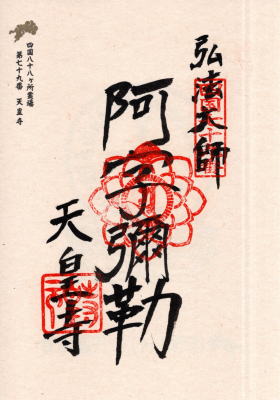 弘法大師
阿字彌勒
天皇寺
四国八十八ヶ所霊場
第七十九番 天皇寺